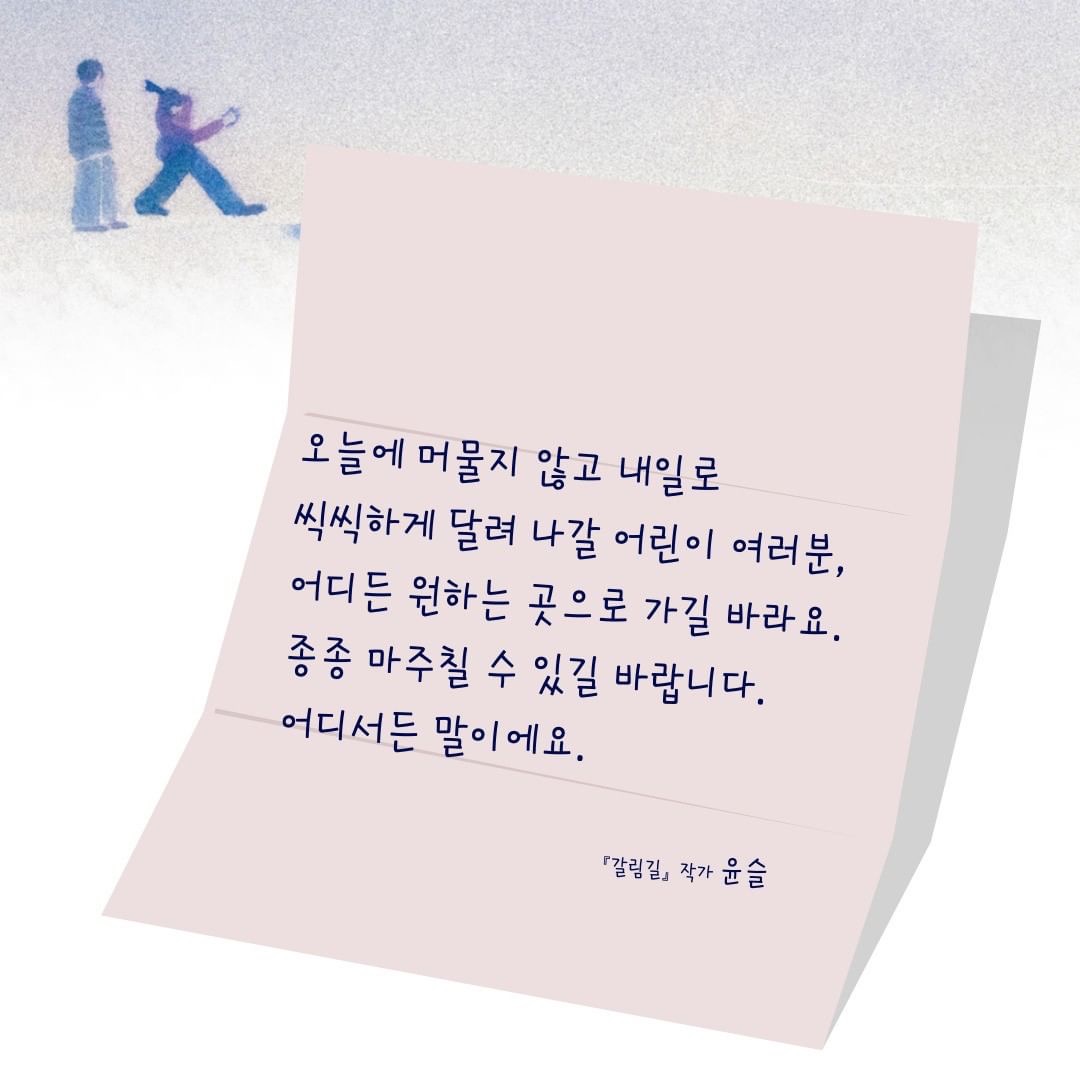 오늘에 머물지 않고 내일로
씩씩하게 달려 나갈 어린이 여러분,
어디든 원하는 곳으로 가길 바라요.
종종 마주칠 수 있길 바랍니다.
어디서든 말이에요.
『갈림길』 작가 윤슬